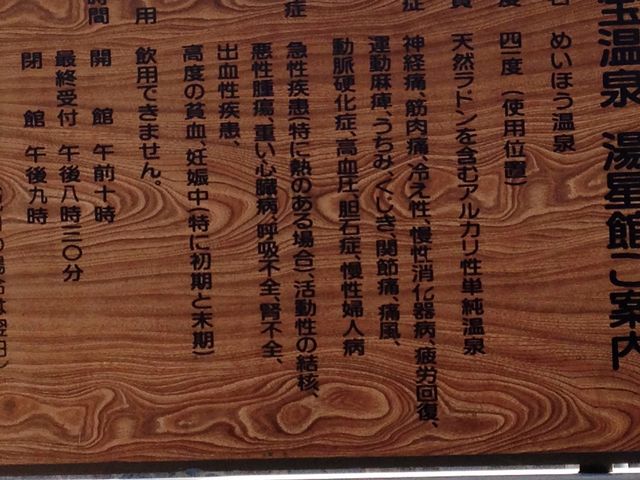 宝温泉 湯星館ご案内
名 めいほう温泉
度 四一度(使用位置)
質 天然ラドンを含むアルカリ性単純温泉
症 神経痛、筋肉痛、冷え性、慢性消化器病、疲労回復、
運動麻痺、うちみ、くじき、関節痛、痛風、
動脈硬化症、高血圧、胆石症、慢性婦人病
症 急性疾患(特に熱のある場合)、活動性の結核、
悪性腫瘍、重い心臓病、呼吸不全、腎不全、
出血性疾患、
高度の貧血、妊娠中(特に初期と末期)
用 飲用できません。
時間 開館 午前十時
最終受付 午後八時三〇分
閉館 午後九時